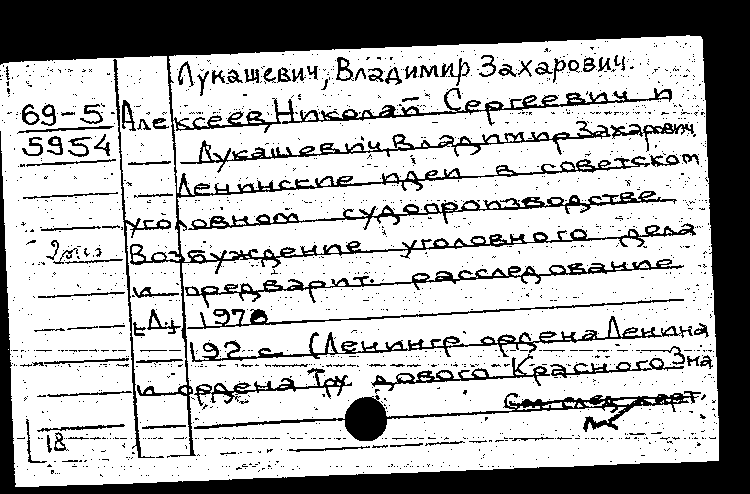 Лукашевич, Владимир Захарович.
69-5 Алексеев, Николай Сергеевич и
5954 Лукашевич, Владимир Захарович
Ленинские идеи в советском
уголовном судопроизводстве.
Возбуждение уголовного дела
и предварит. расследование
[Л.] 1970
192 с (Ленингр ордена Ленина
и ордена Тру дового Красного Зна
См. след карт.
18